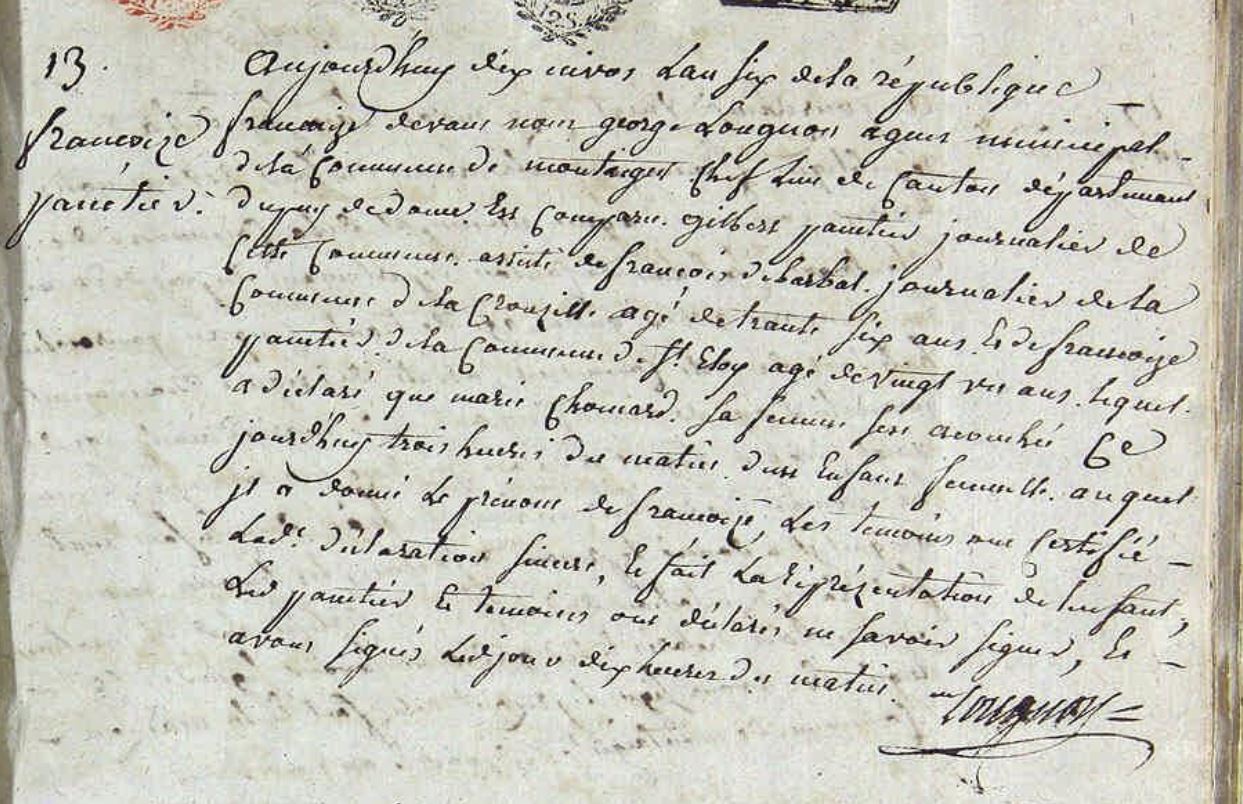 13.
francoize
panetier.
Aujourdhuy dix nivos Lan six de la république
francoize devant nous george Lougnon agent municipal
de la Commune de montaigut Chef Lieu de Canton département
du puy de dome. Est Comparu. gilbert panetier journalier de
Cette Commune. assisté de françois debarbat. journalier de la
Commune de la Crouzille agé de trante six ans. Et de francoize
panetier. de la Commune de St. Eloy agé de vingt un ans. lequel
a déclaré que marie Chomard. sa femme sest acouchée Ce
jourdhuy trois heures du matin. dun Enfant femelle. auquel
jl a donné Le prénom de francoize, Les temoins ont Certifié
Lade. déclaration sincere, Et fait La représentation de lenfant,
Led panetier Et temoins ont déclarés ne savoir signer, Et
avons signés Led jour dix heures du matin.
Lougnon
125